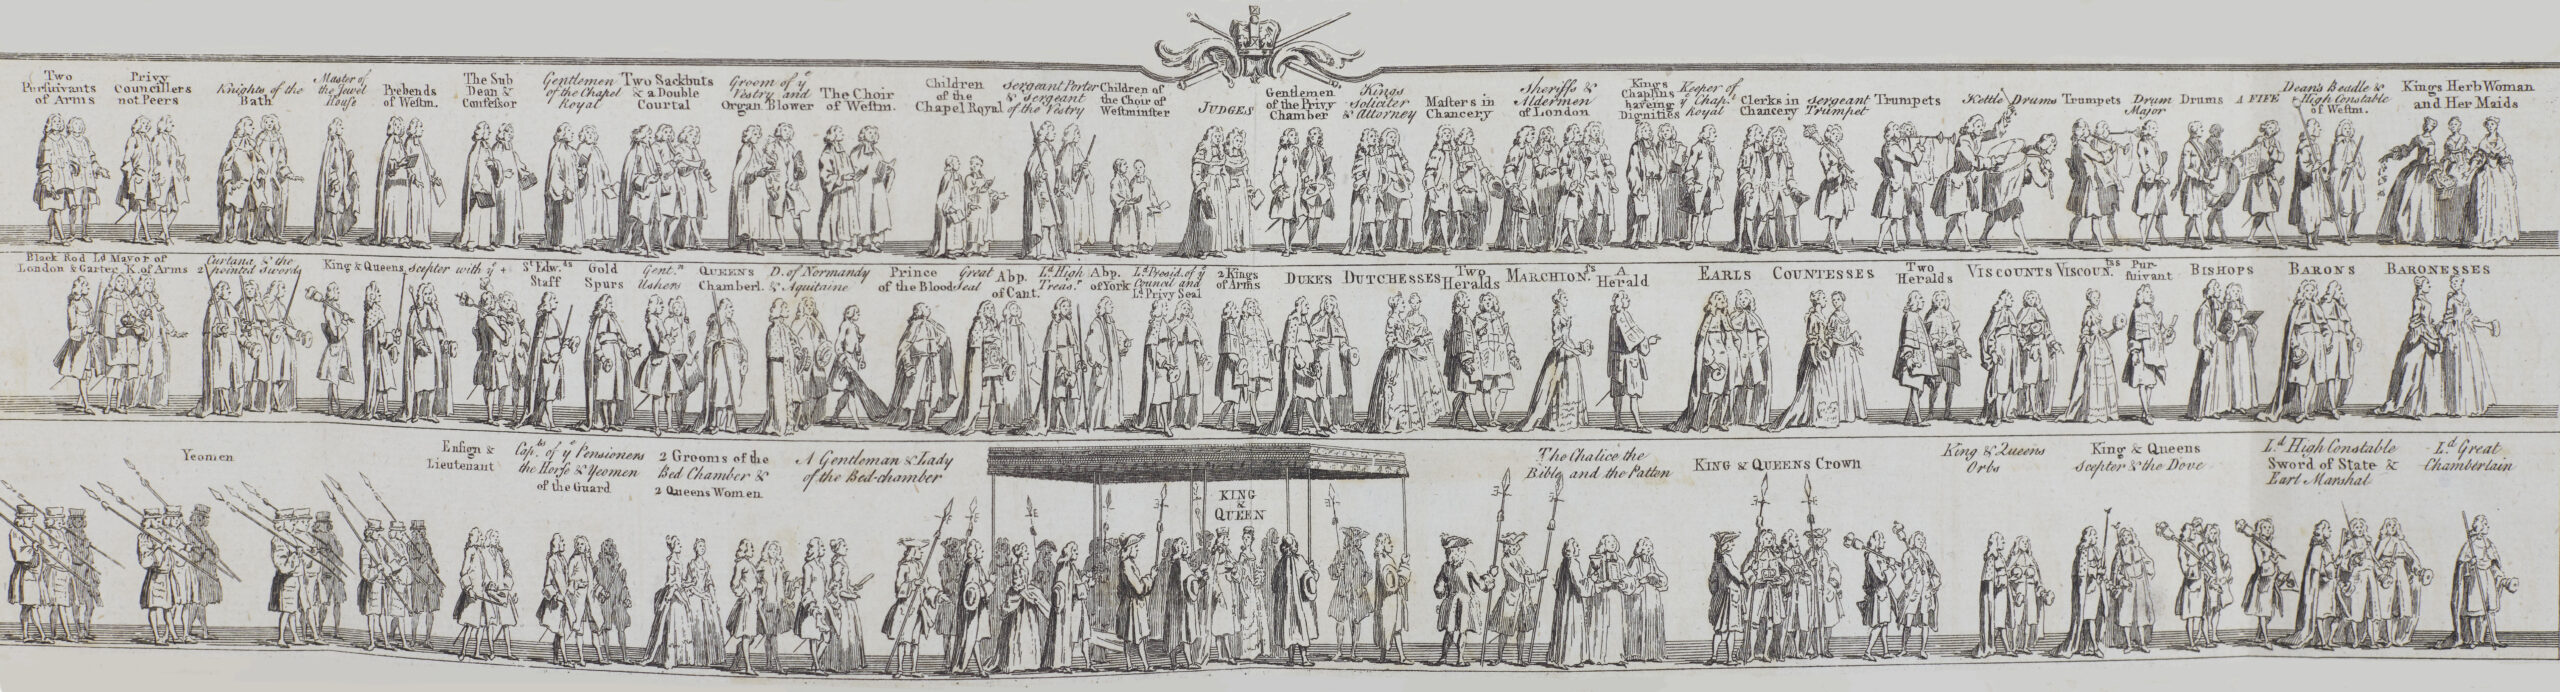 Two
Pursuivants
of Arms
Privy
Councillers
not Peers
Knights of the
Bath
Master of
the Jewel
House
Prebends
of Westm.
The Sub
Dean &
Confessor
Gentlemen
of the Chapel
Royal
Two Sackbuts
& a Double
Courtal
Groom of yᵉ
Vestry and
Organ Blower
The Choir
of Westm.
Children
of the
Chapel Royal
Sergeant Porter
& Sergeant
of the Vestry
Children of
the Choir of
Westminster
JUDGES
Gentlemen
of the Privy
Chamber
Kings
Soliciter
& Attorney
Masters in
Chancery
Sheriffs &
Aldermen
of London
Kings
Chaplins
haveing
Dignities
Keeper of
yᵉ Chap.ˡ
Royal
Clerks in
Chancery
Sergeant
Trumpet
Trumpets
Kettle Drums
Trumpets
Drum
Major
Drums
A FIFE
Dean's Beadle &
High Constable
of Westm.
Kings Herb Woman
and Her Maids
Black Rod Lᵈ Mayor of
London & Garter K. of Arms
Curtana, & the
2 pointed Swords
King & Queens Scepter with yᵉ +
Sᵗ Edw.ᵈˢ
Staff
Gold
Spurs
Gent.ⁿ
Ushers
QUEENS
Chamberl.
D. of Normandy
& Aquitaine
Prince
of the Blood
Great
Seal
Abp.
of Cant.
Lᵈ High
Treas.ʳ
Abp.
of York
Lᵈ Presid. of yᵉ
Council and
Lᵈ Privy Seal
2 Kings
of Arms
DUKES
DUTCHESSES
Two
Heralds
MARCHION.ˢˢ
A
Herald
EARLS
COUNTESSES
Two
Heralds
VISCOUNTS
VISCOUN.ᵗˢˢ
Pur-
suivant
BISHOPS
BARONS
BARONESSES
Yeomen
Ensign &
Lieutenant
Cap.ᵗˢ of yᵉ Pensioners
the Horse & Yeomen
of the Guard
2 Grooms of the
Bed Chamber &
2 Queens Women
A Gentleman & Lady
of the Bed-chamber
KING
&
QUEEN
The Chalice the
Bible and the Patten
KING & QUEENS Crown
King & Queens
Orbs
King & Queens
Scepter & the Dove
Lᵈ High Constable
Sword of State &
Earl Marshal
Lᵈ Great
Chamberlain